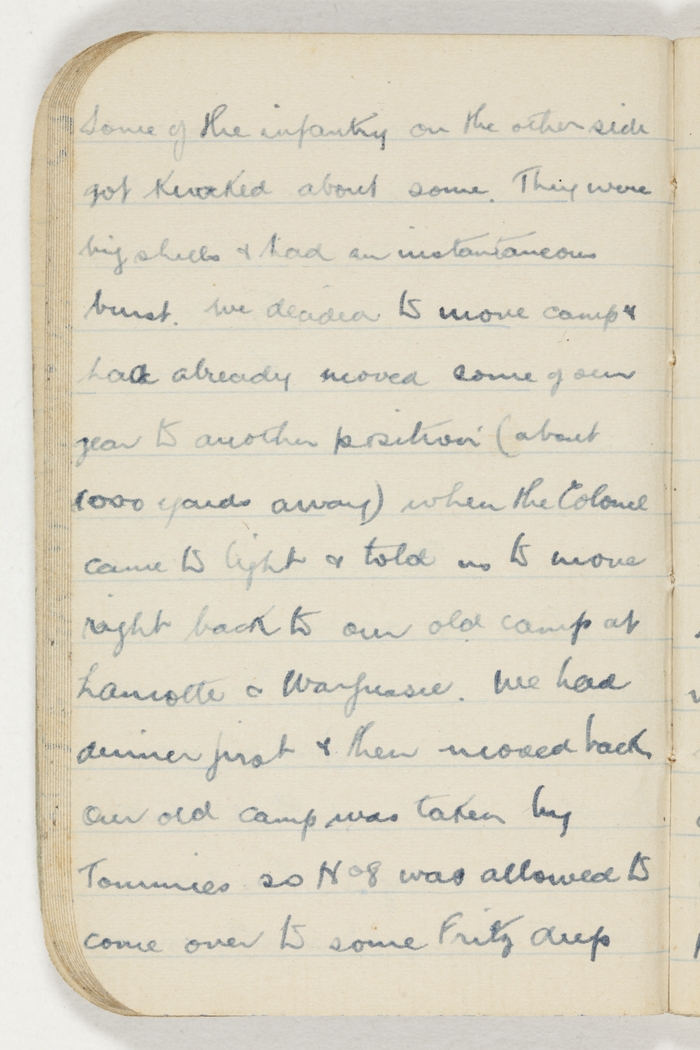 Some of the infantry on the other side
got knocked about some. They were
big shells & had an instantaneous
burst. We decided to move camp &
had already moved some of our
gear to another position (about
1000 yards away) when the Colonel
came to light & told us to move
right back to our old camp at
Lamotte & Warfusee. We had
dinner first & then moved back
Our old camp was taken by
Tommies so No 8 was allowed to
come over to some Fritz deep